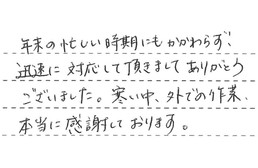 年末の忙しい時期にもかかわらず、
迅速に対応して頂きましてありがとう
ございました。寒い中、外での作業、
本当に感謝しております。